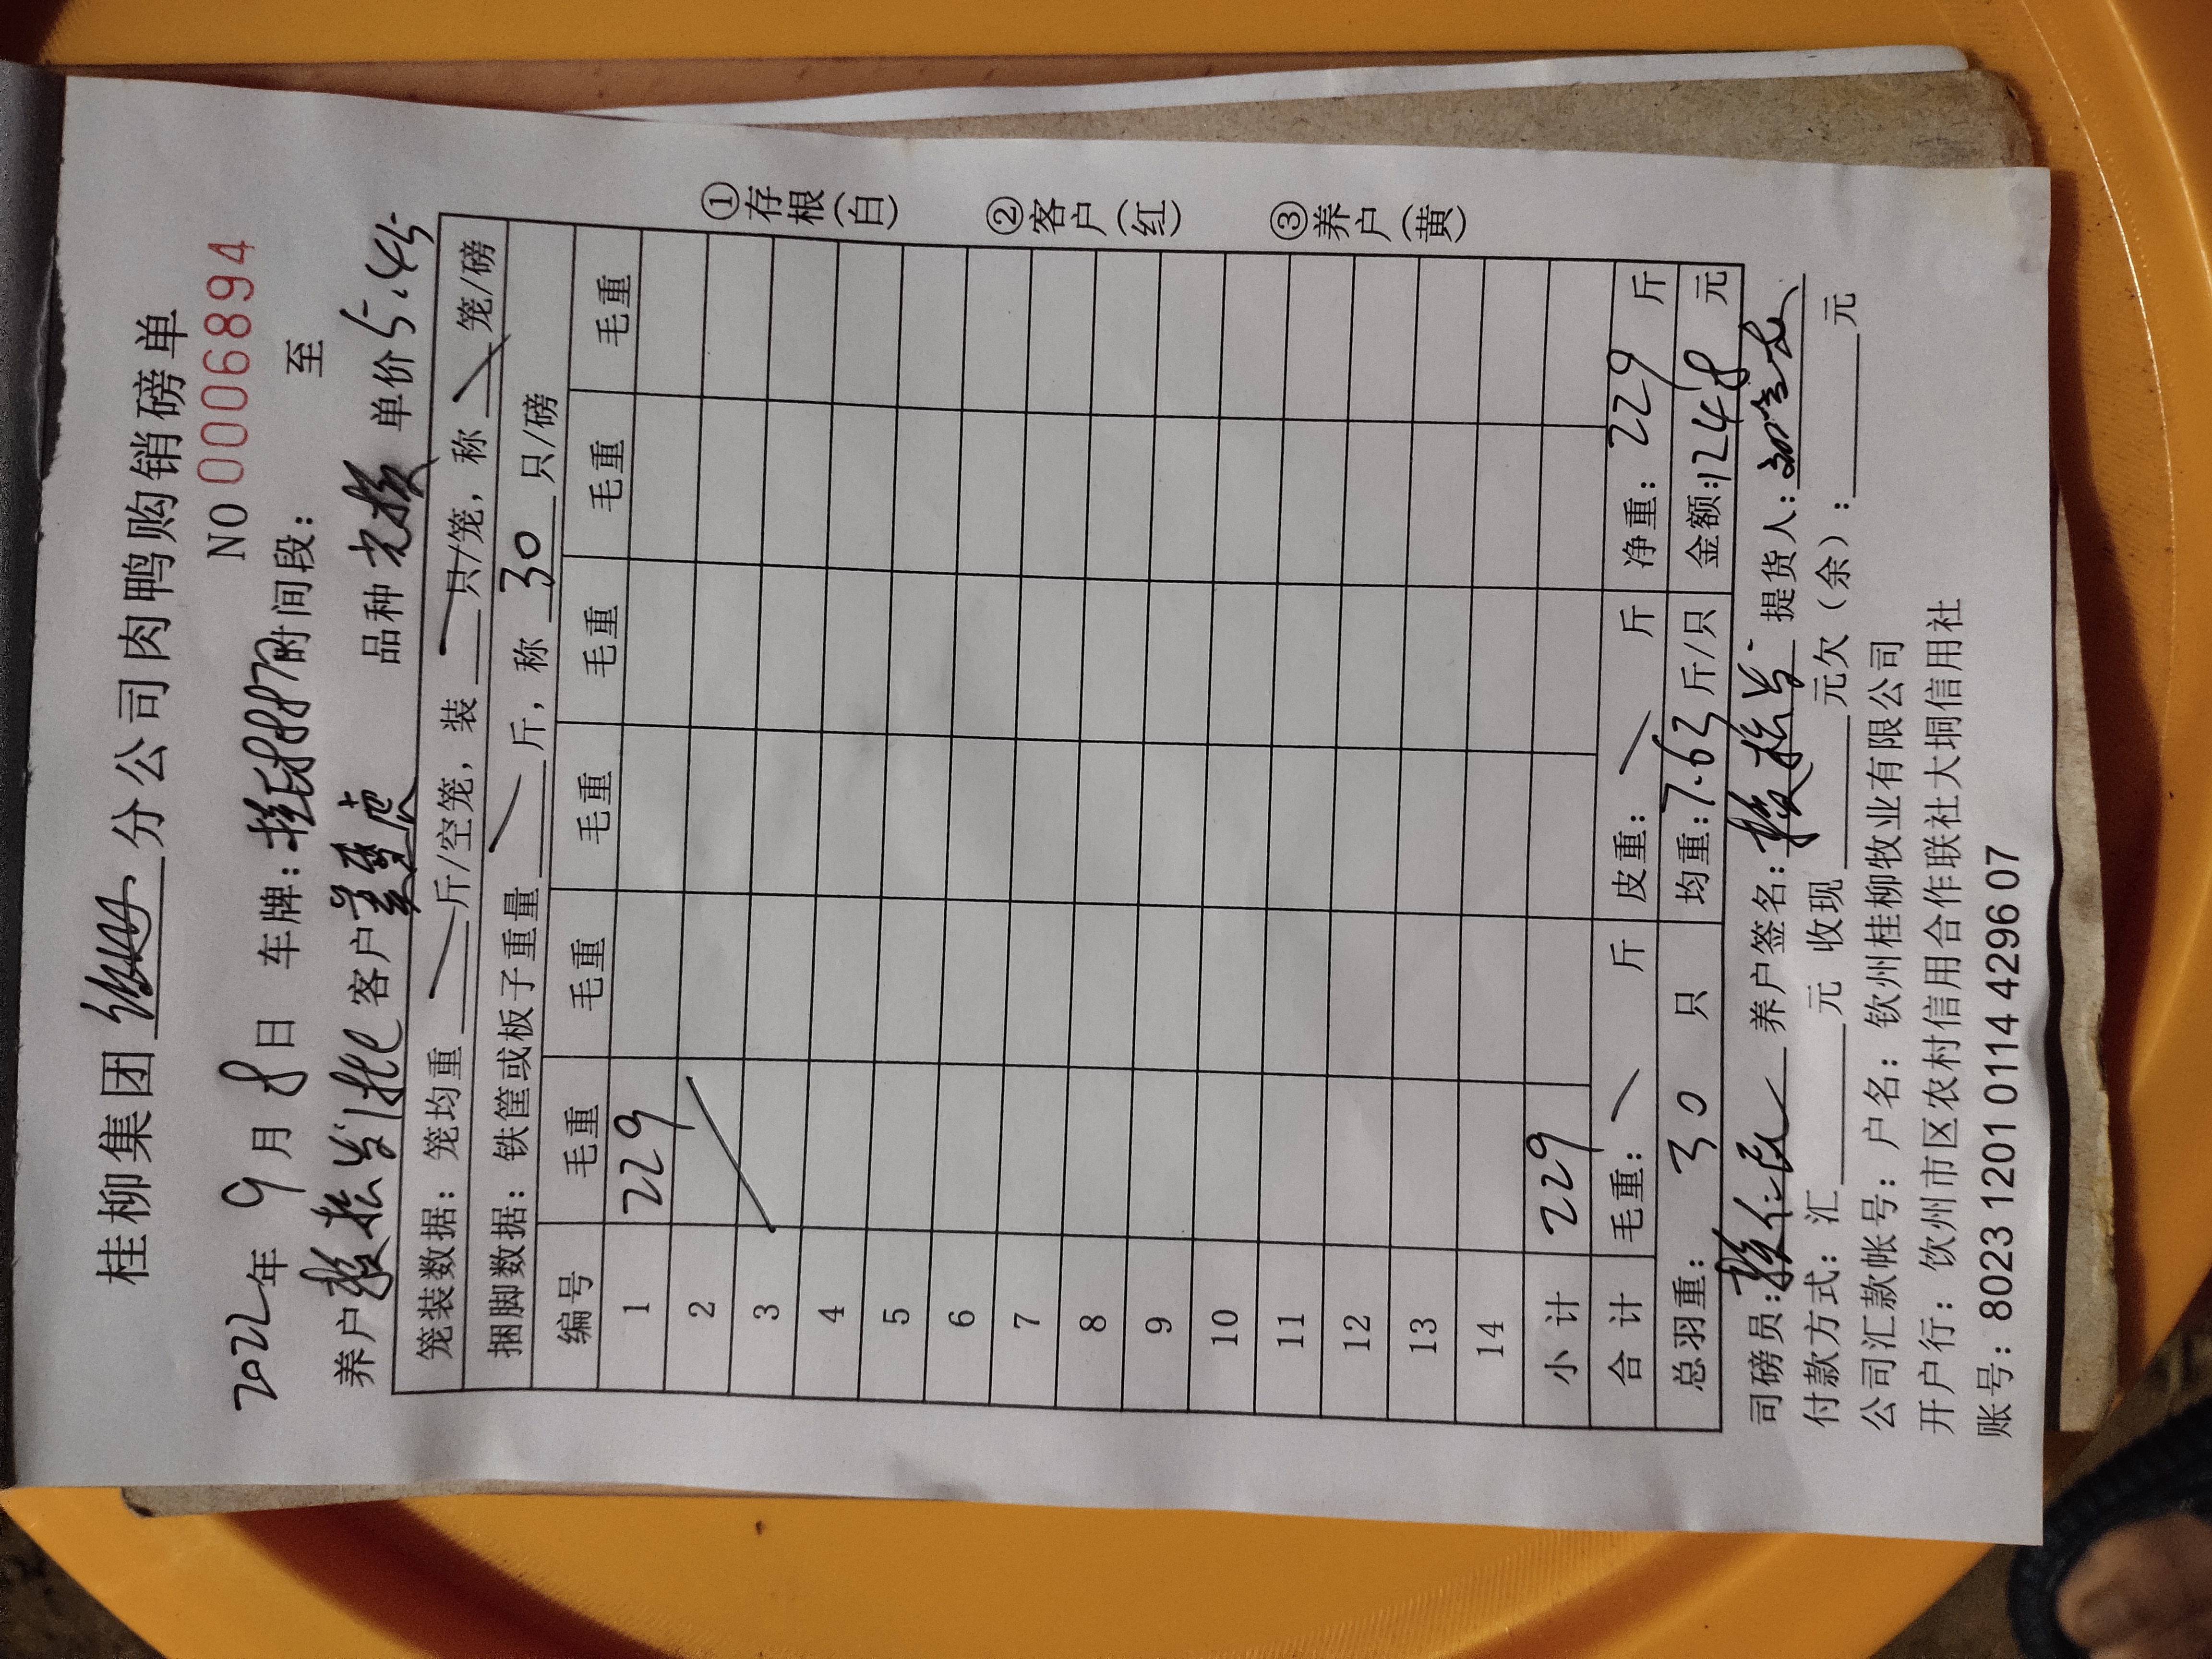 桂柳集团 分公司肉鸭购销磅单
NO 0006894
2022年 9月 8日 车牌: 时间段: 至
养户 客户 品种 单价 5.45
笼装数据: 笼均重 / 斤/空笼, 装 / 只/笼, 称 / 笼/磅
捆脚数据: 铁筐或板子重量 / 斤, 称 30 只/磅
编号 毛重 毛重 毛重 毛重 毛重 毛重
1 229
2
3
4
5
6
7
8
9
10
11
12
13
14
小计 229
合计 毛重: / 斤 皮重: / 斤 净重: 229 斤
总羽重: 30 只 均重: 7.63 斤/只 金额: 1248 元
司磅员: 养户签名: 提货人:
付款方式: 汇 元 收现 元欠(余): 元
公司汇款帐号: 户名: 钦州桂柳牧业有限公司
开户行: 饮州市区农村信用合作联社大垌信用社
账号: 8023 1201 0114 4296 07
①存根(白)
②客户(红)
③养户(黄)